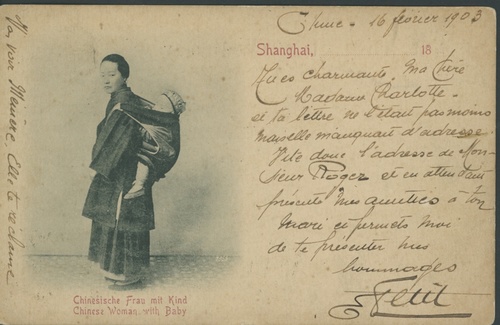 Chine - 16 février 1903
Shanghai, 18
charmante. Ma chère
Madame Charlotte.
et ta lettre ne l'était pas moins
mais elle manquait d'adresse
Vite donc l'adresse de Mon-
sieur Roger et en attendant
présente mes amitiés à ton
mari et permets moi
de te présenter mes
hommages
Petit
Va, voir Elle te réclame
Chinesische Frau mit Kind
Chinese Woman with Baby